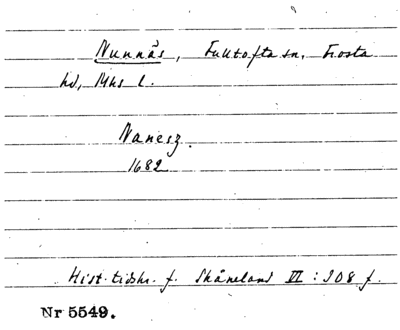 Nunnäs, Fultofta sn, Frosta
hd, Mhs l.
Nanesz.
1682
Hist. tidskr. f. Skåneland VI : 308 f.
Nr 5549.